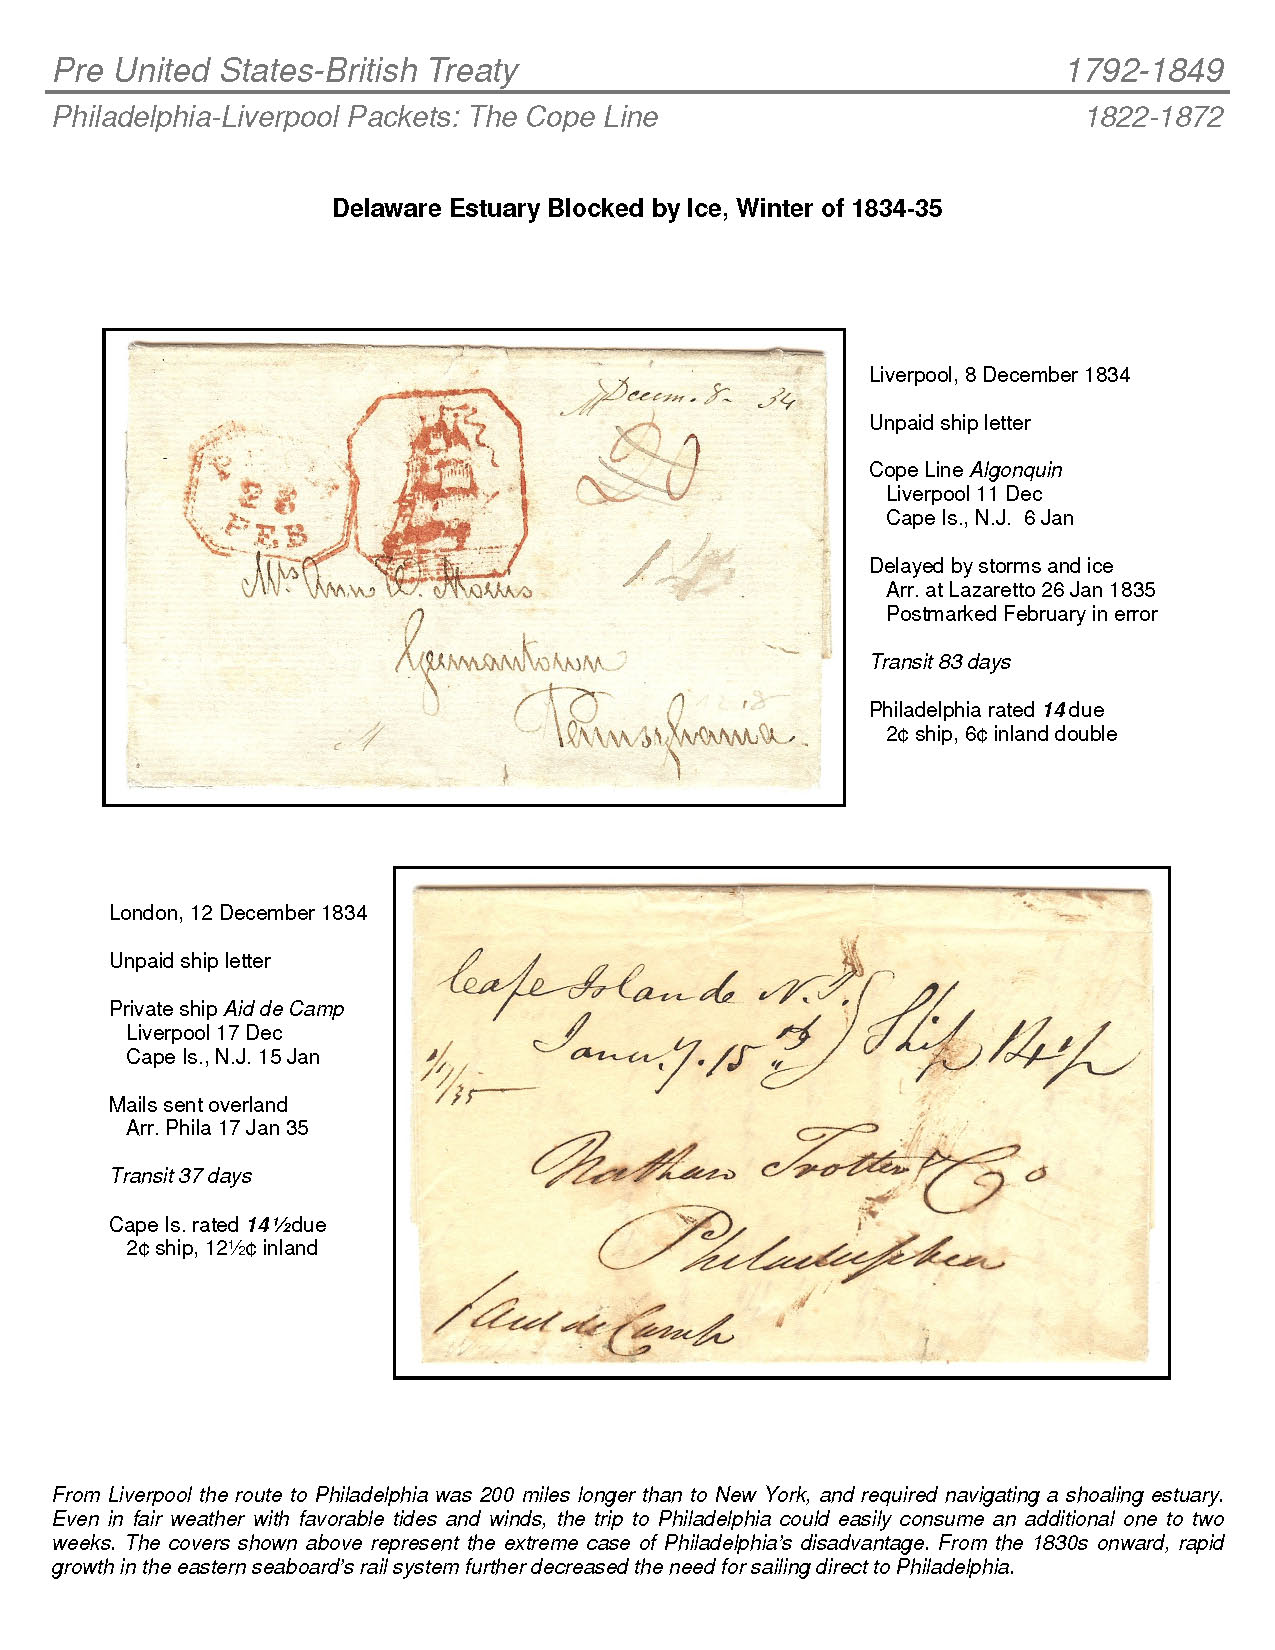 Pre United States-British Treaty 1792-1849
Philadelphia-Liverpool Packets: The Cope Line 1822-1872
Delaware Estuary Blocked by Ice, Winter of 1834-35
Decem. 8. 34
28
FEB
14
Mrs. Ann C. Morris
Germantown
Pennsylvania.
Liverpool, 8 December 1834
Unpaid ship letter
Cope Line Algonquin
Liverpool 11 Dec
Cape Is., N.J. 6 Jan
Delayed by storms and ice
Arr. at Lazaretto 26 Jan 1835
Postmarked February in error
Transit 83 days
Philadelphia rated 14 due
2¢ ship, 6¢ inland double
London, 12 December 1834
Unpaid ship letter
Private ship Aid de Camp
Liverpool 17 Dec
Cape Is., N.J. 15 Jan
Mails sent overland
Arr. Phila 17 Jan 35
Transit 37 days
Cape Is. rated 14½due
2¢ ship, 12½¢ inland
Cape Islande N.J.
Janu.y. 15th Ship 14½
1/17/35
Nathan Trotter & Co
Philadelphia
Aid de Camp
From Liverpool the route to Philadelphia was 200 miles longer than to New York, and required navigating a shoaling estuary.
Even in fair weather with favorable tides and winds, the trip to Philadelphia could easily consume an additional one to two
weeks. The covers shown above represent the extreme case of Philadelphia's disadvantage. From the 1830s onward, rapid
growth in the eastern seaboard's rail system further decreased the need for sailing direct to Philadelphia.